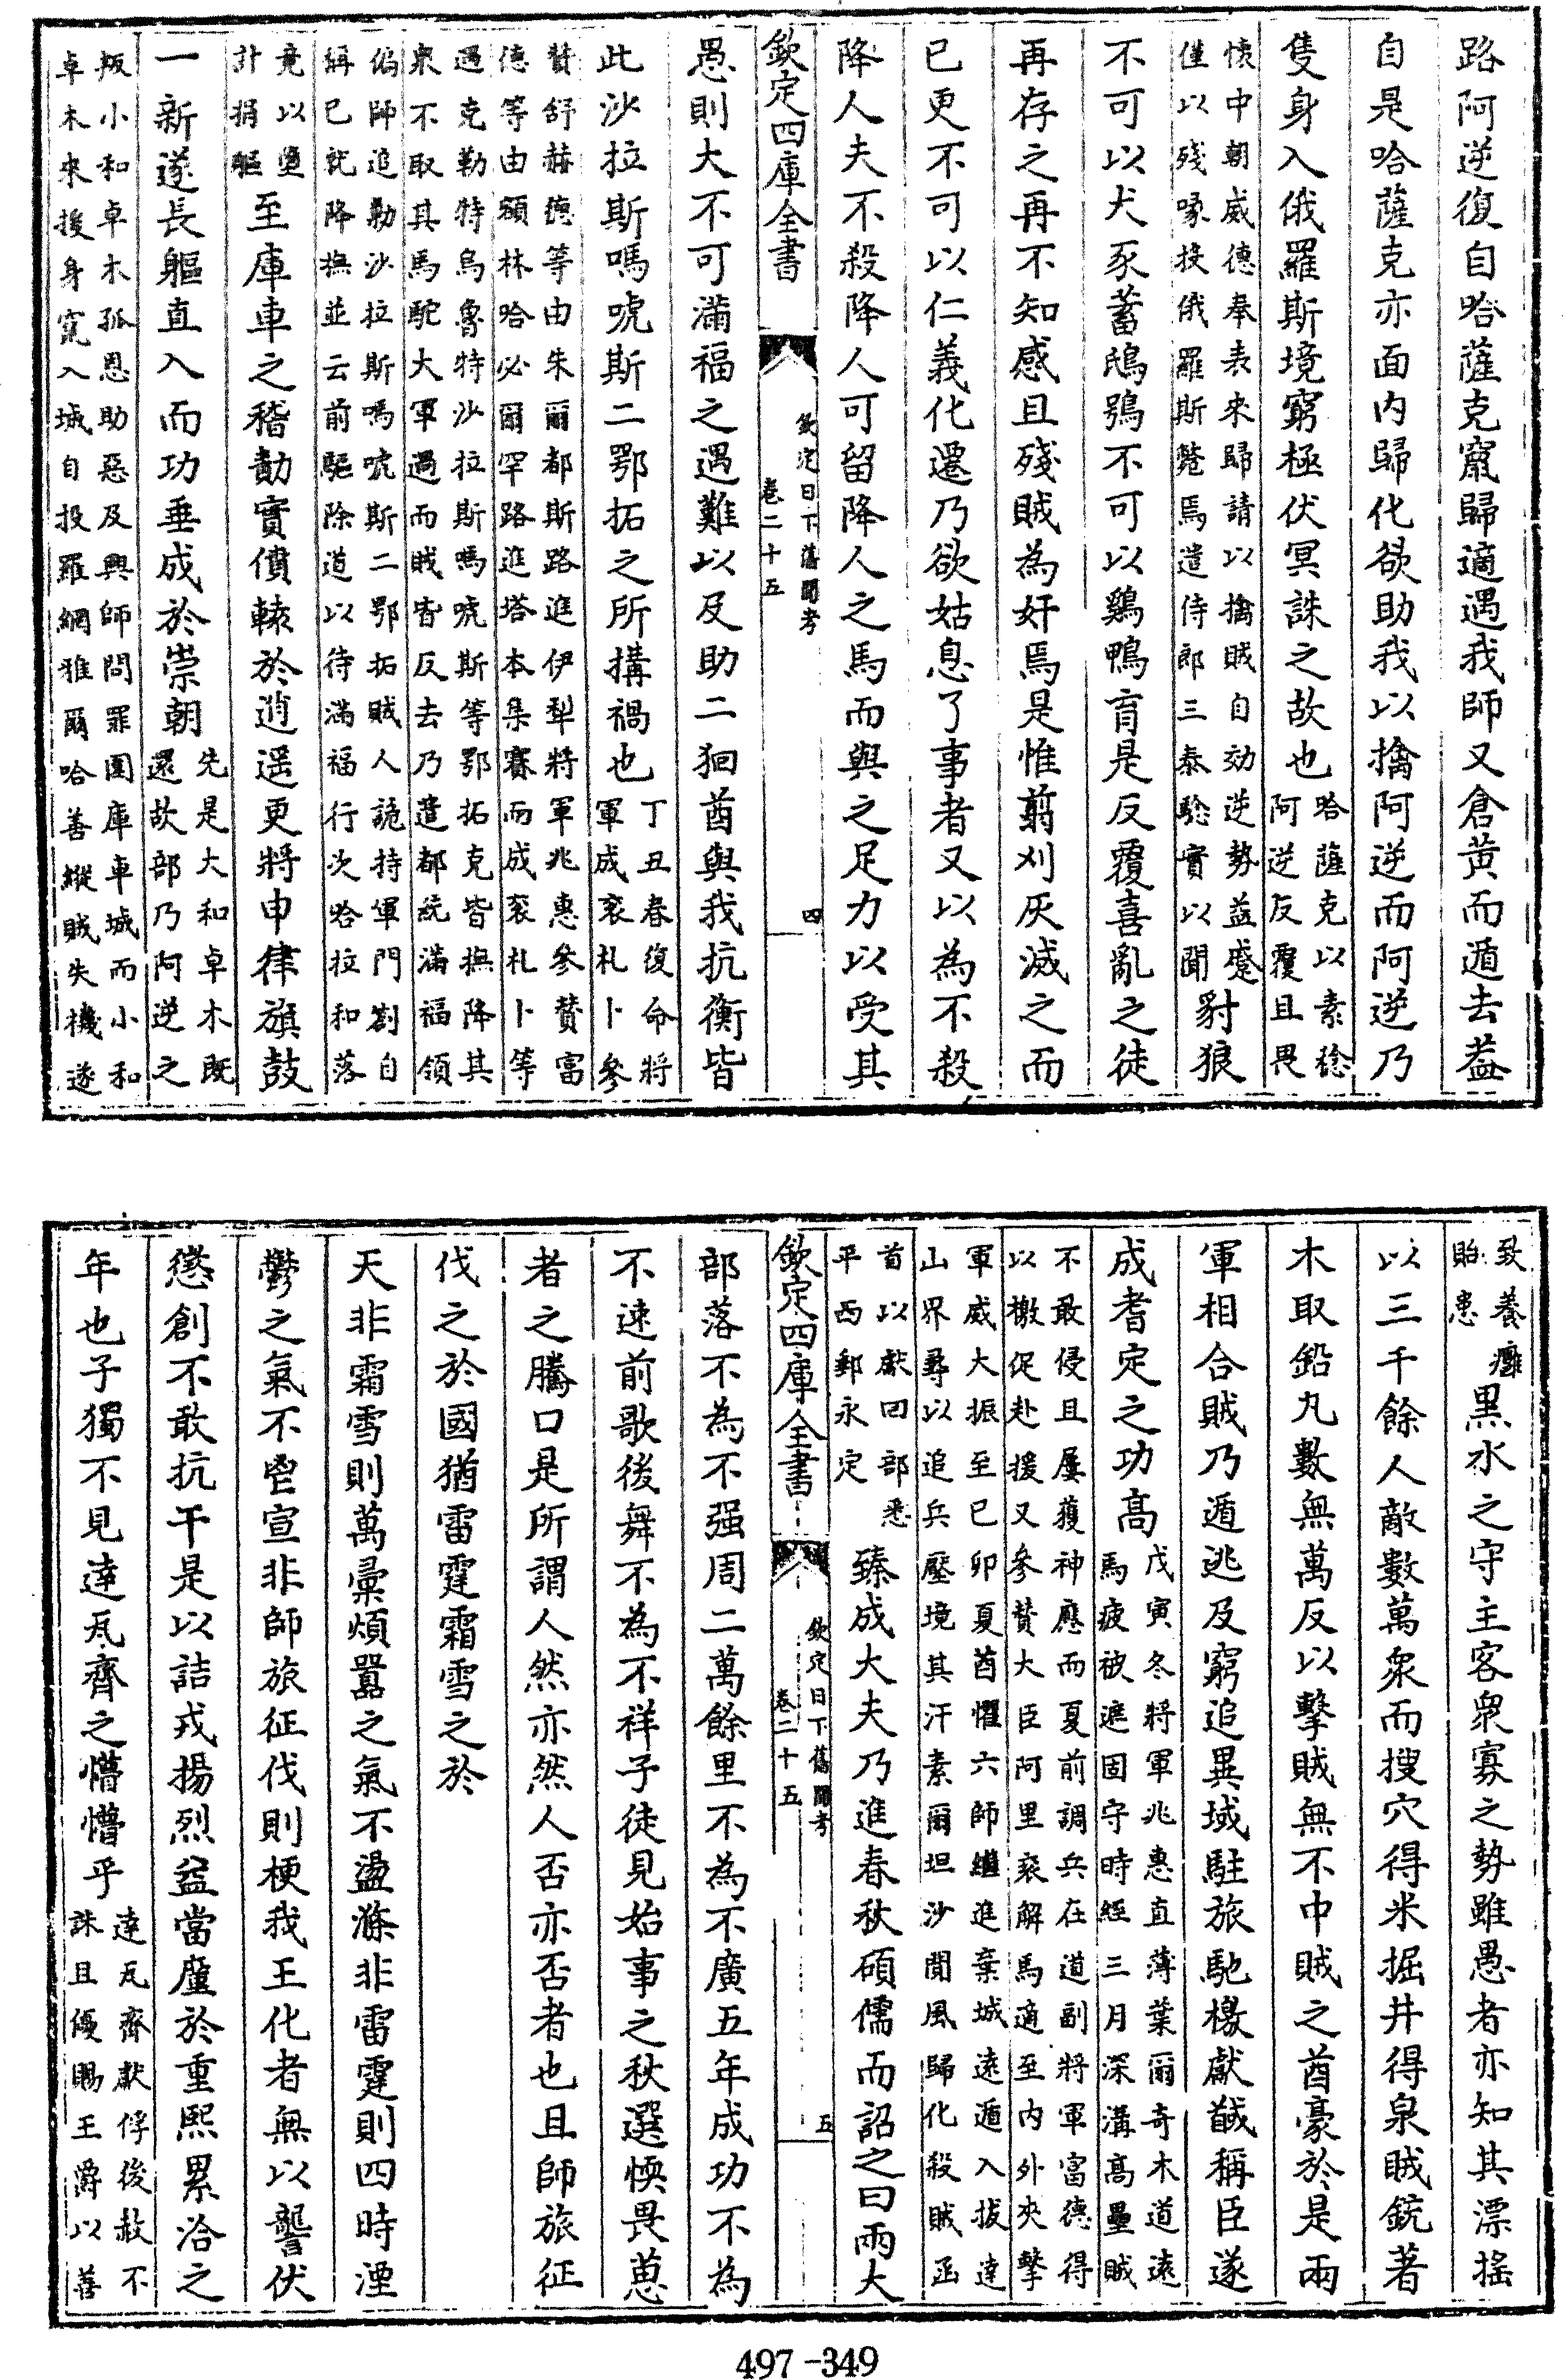 路阿逆復自哈薩克竄歸適遇我師又倉黄而遁去葢
自是哈薩克亦面内歸化欲助我以擒阿逆而阿逆乃
隻身入俄羅斯境窮極伏冥誅之故也
哈薩克以素稔
阿逆反覆且畏
懐中朝威德奉表来歸請以擒賊自効逆勢益蹙
僅以殘喙投俄羅斯斃焉遣侍郎三泰驗實以聞
豺狼
不可以犬豕蓄鴟鴞不可以鷄鴨育是反覆喜亂之徒
再存之再不知感且殘賊為奸焉是惟翦刈灰滅之而
已更不可以仁義化遷乃欲姑息了事者又以為不殺
降人夫不殺降人可留降人之馬而與之足力以受其
欽定四庫全書
欽定日下舊聞考
卷二十五
四
愚則大不可滿福之遇難以及助二狪酋與我抗衡皆
此沙拉斯嗎唬斯二鄂拓之所搆禍也
丁丑春復命將
軍成衮札卜參
贊舒赫德等由朱爾都斯路進伊犁將軍兆惠參贊富
德等由額林哈必爾罕路進塔本集賽而成衮札卜等
過克勒特烏魯特沙拉斯嗎唬斯等鄂拓克皆撫降其
衆不取其馬駝大軍過而賊皆反去乃遣都統滿福領
偏師追勦沙拉斯嗎唬斯二鄂拓賊人詭持軍門劄自
稱已就降撫並云前驅除道以待滿福行次哈拉和落
竟以墮
計捐軀
至庫車之稽勣實僨轅於逍遥更將申律旗鼓
一新遂長軀直入而功垂成於崇朝
先是大和卓木既
還故部乃阿逆之
叛小和卓木孤恩助惡及興師問罪圍庫車城而小和
卓木來援身竄入城自投羅網雅爾哈善縱賊失機遂
致養癰
貽患
黒水之守主客衆寡之勢雖愚者亦知其漂揺
以三千餘人敵數萬衆而搜穴得米掘井得泉賊銃著
木取鉛丸數無萬反以擊賊無不中賊之酋豪於是兩
軍相合賊乃遁逃及窮追異域駐旅馳檄獻馘稱臣遂
成耆定之功高
戊寅冬將軍兆惠直薄葉爾奇木道遠
馬疲被遮固守時經三月深溝高壘賊
不敢侵且屢獲神應而夏前調兵在道副將軍富德得
以檄促赴援又參贊大臣阿里衮解馬適至内外夾擊
軍威大振至已卯夏酋懼六師繼進棄城遠遁入拔達
山界尋以追兵壓境其汗素爾坦沙聞風歸化殺賊函
首以獻回部悉
平西郵永定
臻成大夫乃進春秋碩儒而詔之曰兩大
欽定四庫全書
欽定日下舊聞考
卷二十五
五
部落不為不强周二萬餘里不為不廣五年成功不為
不速前歌後舞不為不祥子徒見始事之秋選懊畏葸
者之騰口是所謂人然亦然人否亦否者也且師旅征
伐之於國猶雷霆霜雪之於
天非霜雪則萬彚煩囂之氣不盪滌非雷霆則四時湮
鬱之氣不鬯宣非師旅征伐則梗我王化者無以讋伏
懲創不敢抗干是以詰戎揚烈盆當廑於重熙累洽之
年也子獨不見達瓦齊之懵懵乎
達瓦齊獻俘後赦不
誅且優賜王爵以善
497-349